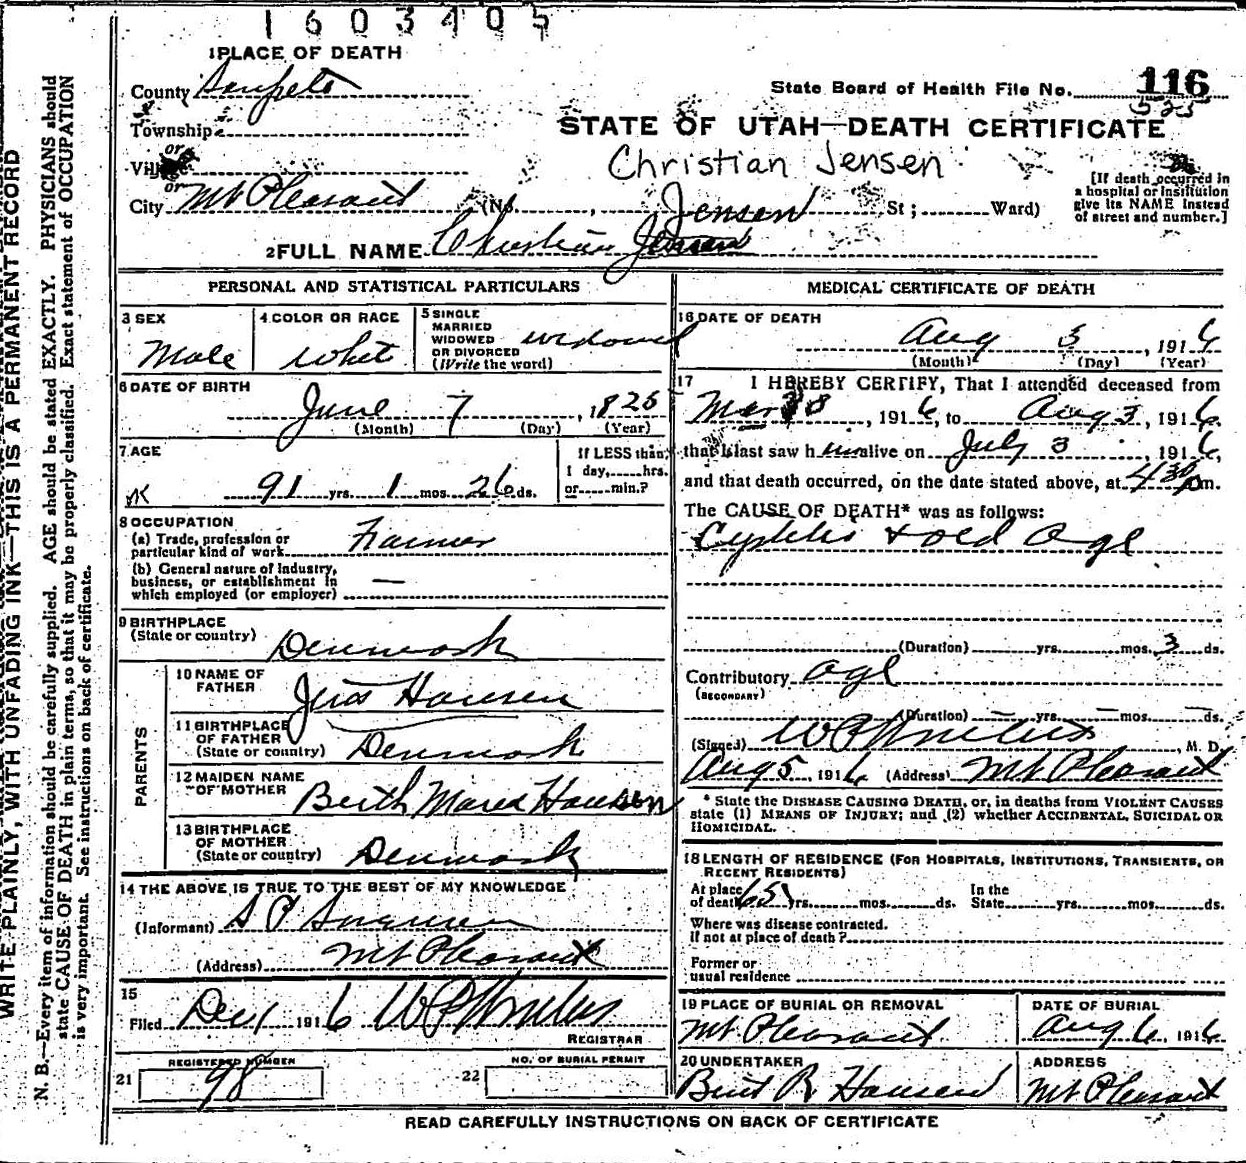 1603405
1 PLACE OF DEATH
County Sanpete
State Board of Health File No. 116
525
Township
STATE OF UTAH—DEATH CERTIFICATE
or
Christian Jensen
Village
or
City Mt Pleasant (No. , Jensen St ; Ward)
[If death occurred in
a hospital or institution
give its NAME instead
of street and number.]
2 FULL NAME Christian Jensen
PERSONAL AND STATISTICAL PARTICULARS
3 SEX
Male
4 COLOR OR RACE
White
5 SINGLE
MARRIED
WIDOWED
OR DIVORCED
(Write the word)
widowed
6 DATE OF BIRTH
June 7, 1825
(Month) (Day) (Year)
7 AGE
91 yrs. 1 mos. 26 ds.
If LESS than
1 day, hrs.
or min.?
8 OCCUPATION
(a) Trade, profession or
particular kind of work Farmer
(b) General nature of industry,
business, or establishment in
which employed (or employer) —
9 BIRTHPLACE
(State or country) Denmark
PARENTS
10 NAME OF
FATHER Jens Hansen
11 BIRTHPLACE
OF FATHER
(State or country) Denmark
12 MAIDEN NAME
OF MOTHER Berth Maria Hansen
13 BIRTHPLACE
OF MOTHER
(State or country) Denmark
14 THE ABOVE IS TRUE TO THE BEST OF MY KNOWLEDGE
(Informant) S P
(Address) Mt Pleasant
15
Filed Dec 1 1916
REGISTRAR
REGISTERED NUMBER
21 98
NO. OF BURIAL PERMIT
22
MEDICAL CERTIFICATE OF DEATH
16 DATE OF DEATH
Aug 3, 1916
(Month) (Day) (Year)
17 I HEREBY CERTIFY, That I attended deceased from
Mar 1916, to Aug 3, 1916.
that I last saw h im alive on July 3, 1916,
and that death occurred, on the date stated above, at 430 pm.
The CAUSE OF DEATH* was as follows:
Cystitis + old age
(Duration) yrs. mos. 3 ds.
Contributory age
(SECONDARY)
(Duration) — yrs. — mos. — ds.
(Signed) , M. D.
Aug 5, 1916 (Address) Mt Pleasant
* State the DISEASE CAUSING DEATH, or, in deaths from VIOLENT CAUSES
state (1) MEANS OF INJURY; and (2) whether ACCIDENTAL, SUICIDAL OR
HOMICIDAL.
18 LENGTH OF RESIDENCE (FOR HOSPITALS, INSTITUTIONS, TRANSIENTS, OR
RECENT RESIDENTS)
At place
of death 65 yrs. mos. ds.
In the
State yrs. mos. ds.
Where was disease contracted.
If not at place of death?
Former or
usual residence
19 PLACE OF BURIAL OR REMOVAL
Mt Pleasant
DATE OF BURIAL
Aug 6, 1916
20 UNDERTAKER
R Hansen
ADDRESS
Mt Pleasant
READ CAREFULLY INSTRUCTIONS ON BACK OF CERTIFICATE
WRITE PLAINLY, WITH UNFADING INK—THIS IS A PERMANENT RECORD
N. B.—Every item of information should be carefully supplied. AGE should be stated EXACTLY. PHYSICIANS should
state CAUSE OF DEATH in plain terms, so that it may be properly classified. Exact statement of OCCUPATION
is very important. See instructions on back of certificate.